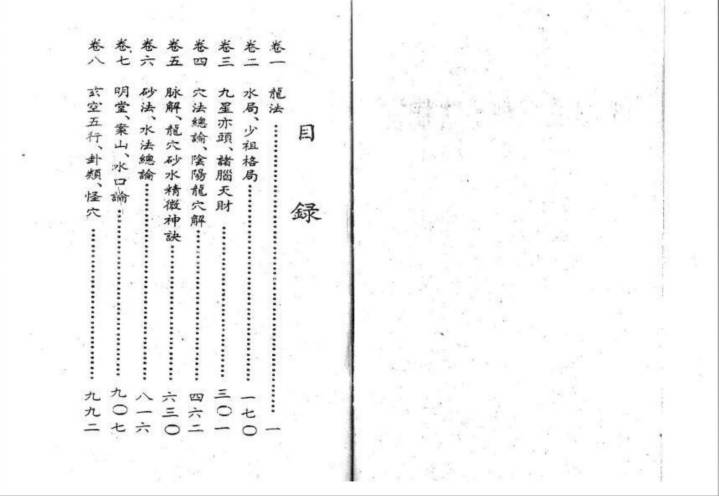 目錄
卷一 龍法…………一
卷二 水局、少祖格局…………一七〇
卷三 九星亦頭、諸腦天財…………三〇一
卷四 穴法總論、陰陽龍穴解…………四六二
卷五 脉解、龍穴砂水精微神訣…………六三〇
卷六 砂法、水法總論…………八一六
卷七 明堂、案山、水口論…………九〇七
卷八 玄空五行、卦類、怪穴…………九九二